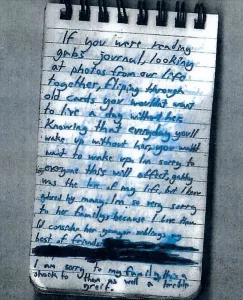 If you were reading
gabs journal, looking
at photos from our life
together, fliping through
old cards you wouldnt want
to live a day without her
Knowing that everyday you'll
wake up without her you wouldnt
want to wake up. Im sorry to
everyone this will affect, gabby
was the love of my life, but I know
adored by many. Im so very sorry
to her family because I love them
Id consider her younger siblings
best of friends
I am sorry to my family this is a
shock to them as well a terrible
greif.